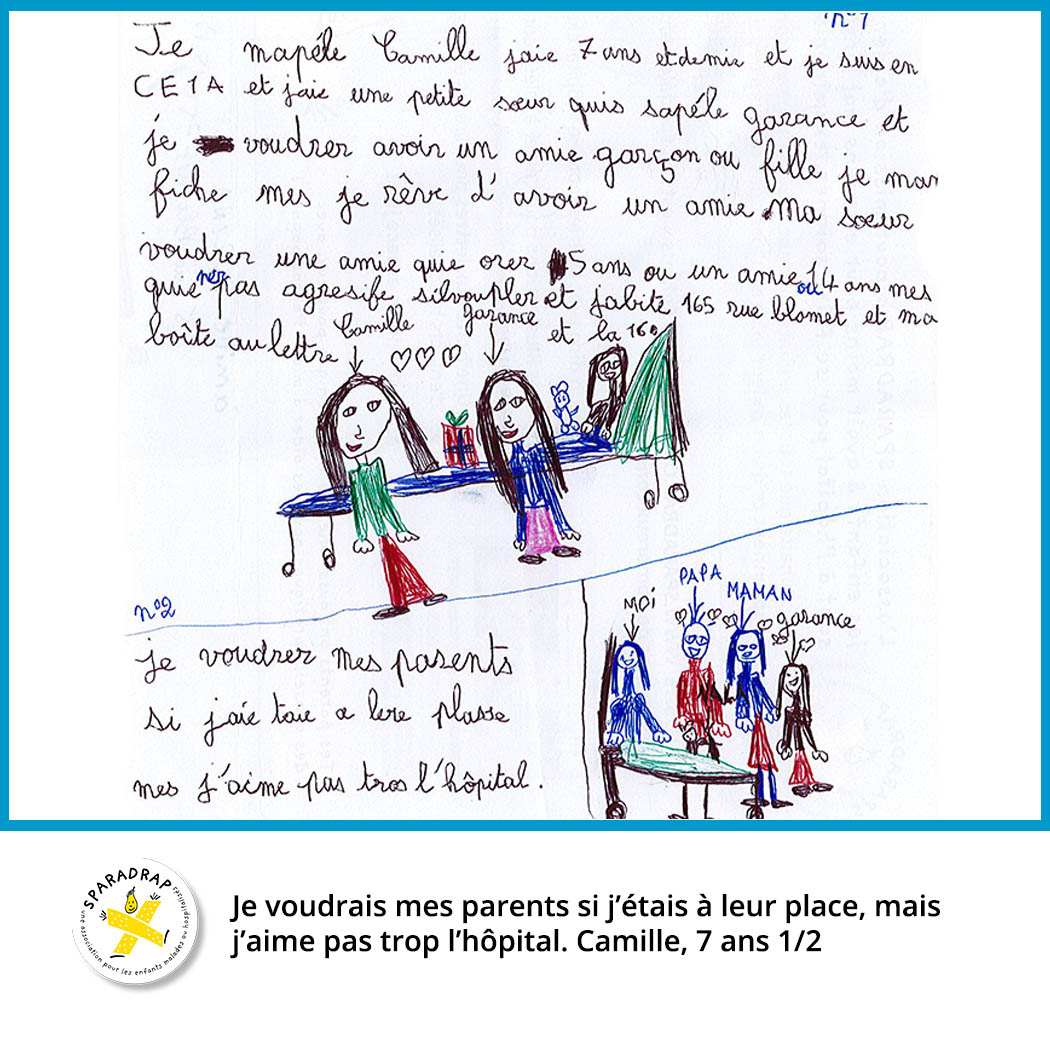 n°1
Je mapéle Camille jaie 7 ans et demie et je suis en
CE1A et jaie une petite sœur quis sapéle garance et
je voudrer avoir un amie garçon ou fille je mon
fiche mes je rêve d'avoir un amie Ma soeur
voudrer une amie quie orer 5 ans ou un amie ou 14 ans mes
quie ner pas agresife silvoupler et jabite 165 rue blomet et ma
boîte au lettre et la 160
Camille garance
n°2
je voudrer mes parents
si jaie taie a lere plasse
mes j'aime pas trop l'hôpital.
MOi PAPA MAMAN garance
SPARADRAP
une association pour les enfants malades ou hospitalisés
Je voudrais mes parents si j'étais à leur place, mais
j'aime pas trop l'hôpital. Camille, 7 ans 1/2